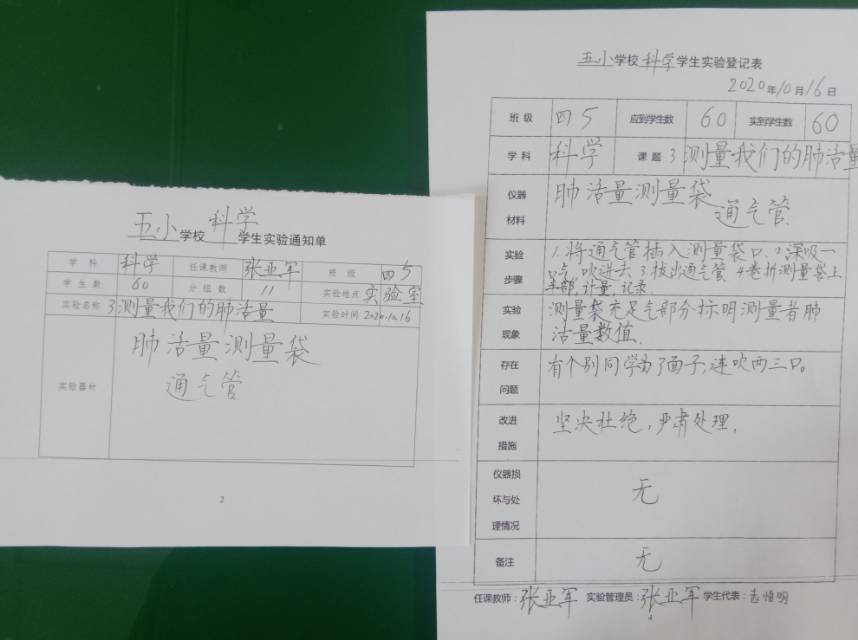 五小学校科学学生实验通知单
学科 科学 任课教师 张亚军 班级 四5
学生数 60 分组数 11 实验地点 实验室
实验名称 3测量我们的肺活量 实验时间 2020.10.16
实验器材 肺活量测量袋
通气管
2
五小学校科学学生实验登记表
2020年10月16日
班级 四5 应到学生数 60 实到学生数 60
学科 科学 课题 3测量我们的肺活量
仪器材料 肺活量测量袋
通气管
实验步骤 1.将通气管插入测量袋口.2.深吸一
口气,吹进去.3.拔出通气管.4.卷折测量袋上
半部,计量,记录.
实验现象 测量袋充足气部分标明测量者肺
活量数值.
存在问题 有个别同学为了面子,连吹两三口。
改进措施 坚决杜绝,严肃处理.
仪器损坏与处理情况 无
备注 无
任课教师:张亚军 实验管理员:张亚军 学生代表: